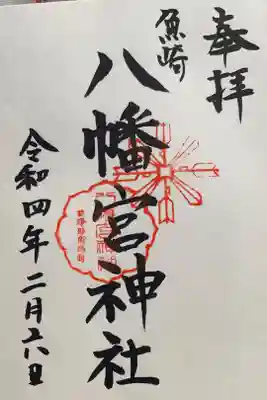 奉拝
魚崎
八幡宮神社
令和四年二月六日